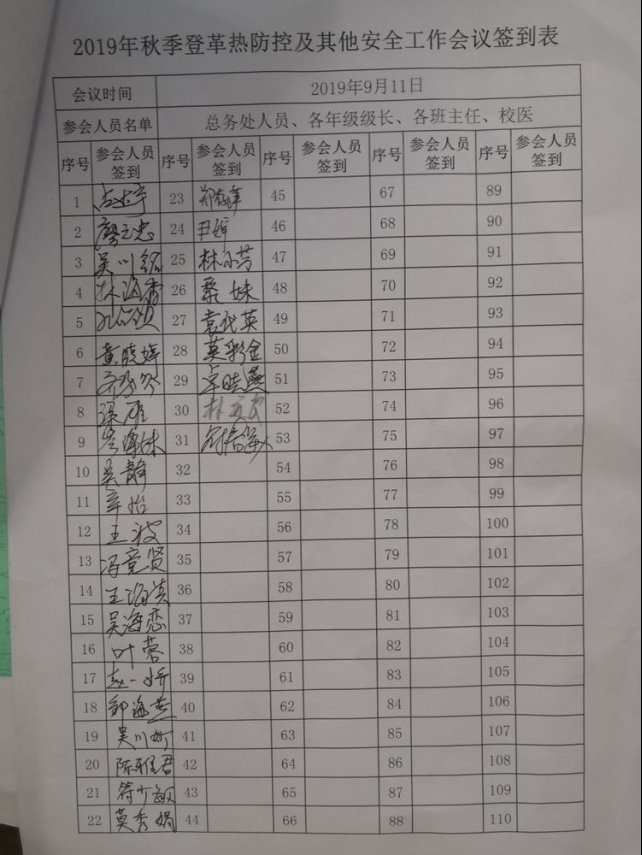 2019年秋季登革热防控及其他安全工作会议签到表
会议时间 2019年9月11日
参会人员名单 总务处人员、各年级级长、各班主任、校医
序号 参会人员签到 序号 参会人员签到 序号 参会人员签到 序号 参会人员签到 序号 参会人员签到
1 23 45 67 89
2 廖之忠 24 尹婷 46 68 90
3 吴川 25 林小芳 47 69 91
4 林海香 26 蔡妹 48 70 92
5 27 袁代英 49 71 93
6 黄晓婷 28 莫彩金 50 72 94
7 29 卓晓燕 51 73 95
8 梁雁 30 林 52 74 96
9 31 53 75 97
10 吴静 32 54 76 98
11 辛怡 33 55 77 99
12 王波 34 56 78 100
13 冯竞贤 35 57 79 101
14 王海 36 58 80 102
15 吴海恋 37 59 81 103
16 叶蓉 38 60 82 104
17 赵一娇 39 61 83 105
18 邹海燕 40 62 84 106
19 吴川町 41 63 85 107
20 陈雅君 42 64 86 108
21 符少敏 43 65 87 109
22 莫秀娟 44 66 88 110